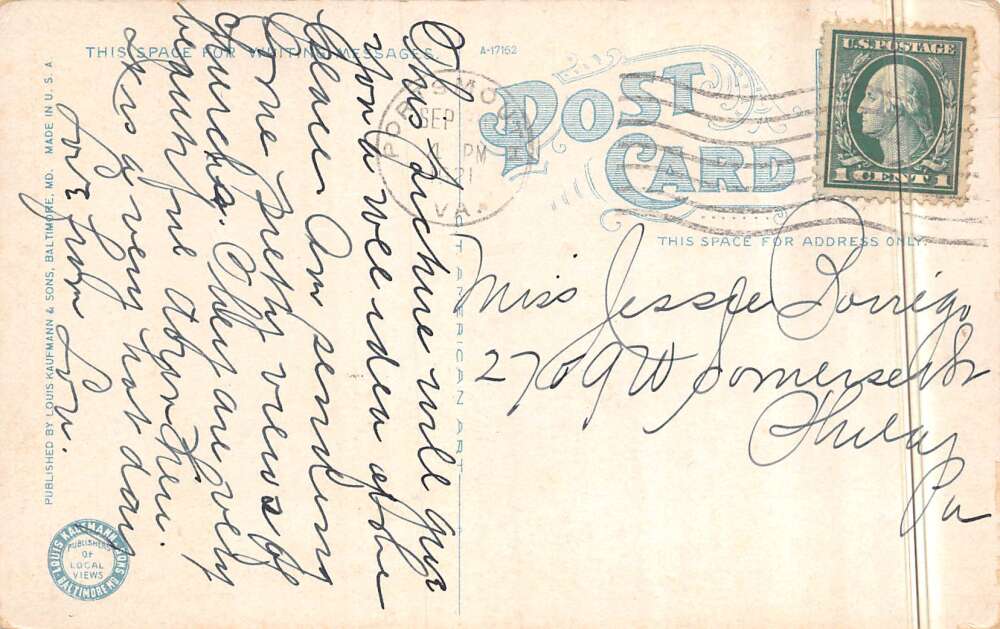 THIS SPACE FOR WRITING MESSAGES
A-17152
POST
CARD
THIS SPACE FOR ADDRESS ONLY.
U.S. POSTAGE
1 CENT 1
PORTSMOUTH
SEP
4 PM
21
VA.
This picture will give
you a wee idea of the
place. Am sending
some pretty views of
churches. They are very
beautiful down here.
This a very hot day
Love from Lou.
Miss Jessie Dorrigo
2709 W Somerset St
Phila,
Pa
PUBLISHED BY LOUIS KAUFMANN & SONS, BALTIMORE, MD. MADE IN U. S. A.
AMERICAN ART
LOUIS KAUFMANN & SONS
BALTIMORE MD
PUBLISHERS
OF
LOCAL
VIEWS